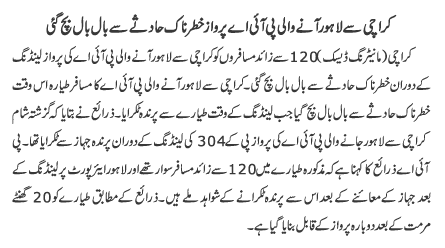 کراچی سے لاہور آنے والی پی آئی اے پرواز خطرناک حادثے سے بال بال بچ گئی
کراچی (مانیٹرنگ ڈیسک) 120 سے زائد مسافروں کو کراچی سے لاہور آنے والی پی آئی اے کی پرواز لینڈنگ
کے دوران خطرناک حادثے سے بال بال بچ گئی۔ کراچی سے لاہور آنے والی پی آئی اے کا مسافر طیارہ اس وقت
خطرناک حادثے سے بال بال بچ گیا جب لینڈنگ کے وقت طیارے سے پرندہ ٹکرایا۔ ذرائع نے بتایا کہ گزشتہ شام
کراچی سے لاہور جانے والی پی آئی اے کی پرواز پی کے 304 کی لینڈنگ کے دوران پرندہ جہاز سے ٹکرایا تھا۔ پی
آئی اے ذرائع کا کہنا ہے کہ مذکورہ طیارے میں 120 سے زائد مسافر سوار تھے اور لاہور ایئرپورٹ پر لینڈنگ کے
بعد جہاز کے معائنے کے بعد اس سے پرندہ ٹکرانے کے شواہد ملے ہیں۔ ذرائع کے مطابق طیارے کو 20 گھنٹے
مرمت کے بعد دوبارہ پرواز کے قابل بنایا گیا ہے۔